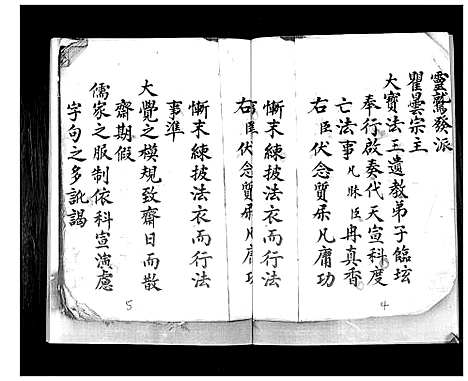 靈鷲發派
瞿曇宗主
大寶法王遺教弟子臨坛
奉行啟奏代天宣科度
亡法事凡昧臣冉真香
右臣伏念質柔凡庸功
慚末練披法衣而行法
右臣伏念質柔凡庸功
慚末練披法衣而行法
事準
大覺之模規致齋日而散
齋期假
儒家之服制依科宣演慮
字句之多訛謁
4
5